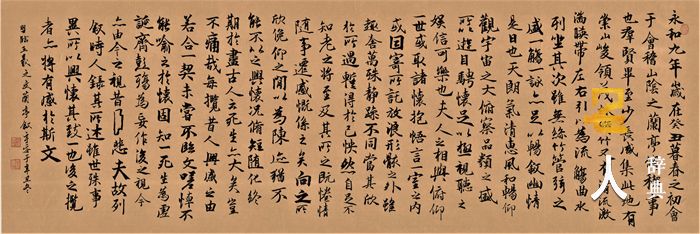 永和九年歲在癸丑暮春之初會
于會稽山陰之蘭亭脩稧事
也羣賢畢至少長咸集此地有
崇山峻領清流激
湍暎帶左右引以為流觴曲水
列坐其次雖無絲竹管弦之
盛一觴一詠亦足以暢敘幽情
是日也天朗氣清惠風和暢仰
觀宇宙之大俯察品類之盛
所以遊目騁懷足以極視聽之
娛信可樂也夫人之相與俯仰
一世或取諸懷抱悟言一室之內
或因寄所託放浪形骸之外雖
趣舍萬殊靜躁不同當其欣
於所遇暫得於己怏然自足不
知老之將至及其所之既惓情
隨事遷感慨係之矣向之所
欣俛仰之間以為陳迹猶不
能不以之興懷況脩短隨化終
期於盡古人云死生亦大矣豈
不痛哉每攬昔人興感之由
若合一契未嘗不臨文嗟悼不
能喻之於懷固知一死生為虛
誕齊彭殤為妄作後之視今
亦由今之視昔悲夫故列
敘時人錄其所述雖世殊事
異所以興懷其致一也後之攬
者亦將有感於斯文
人
辞典